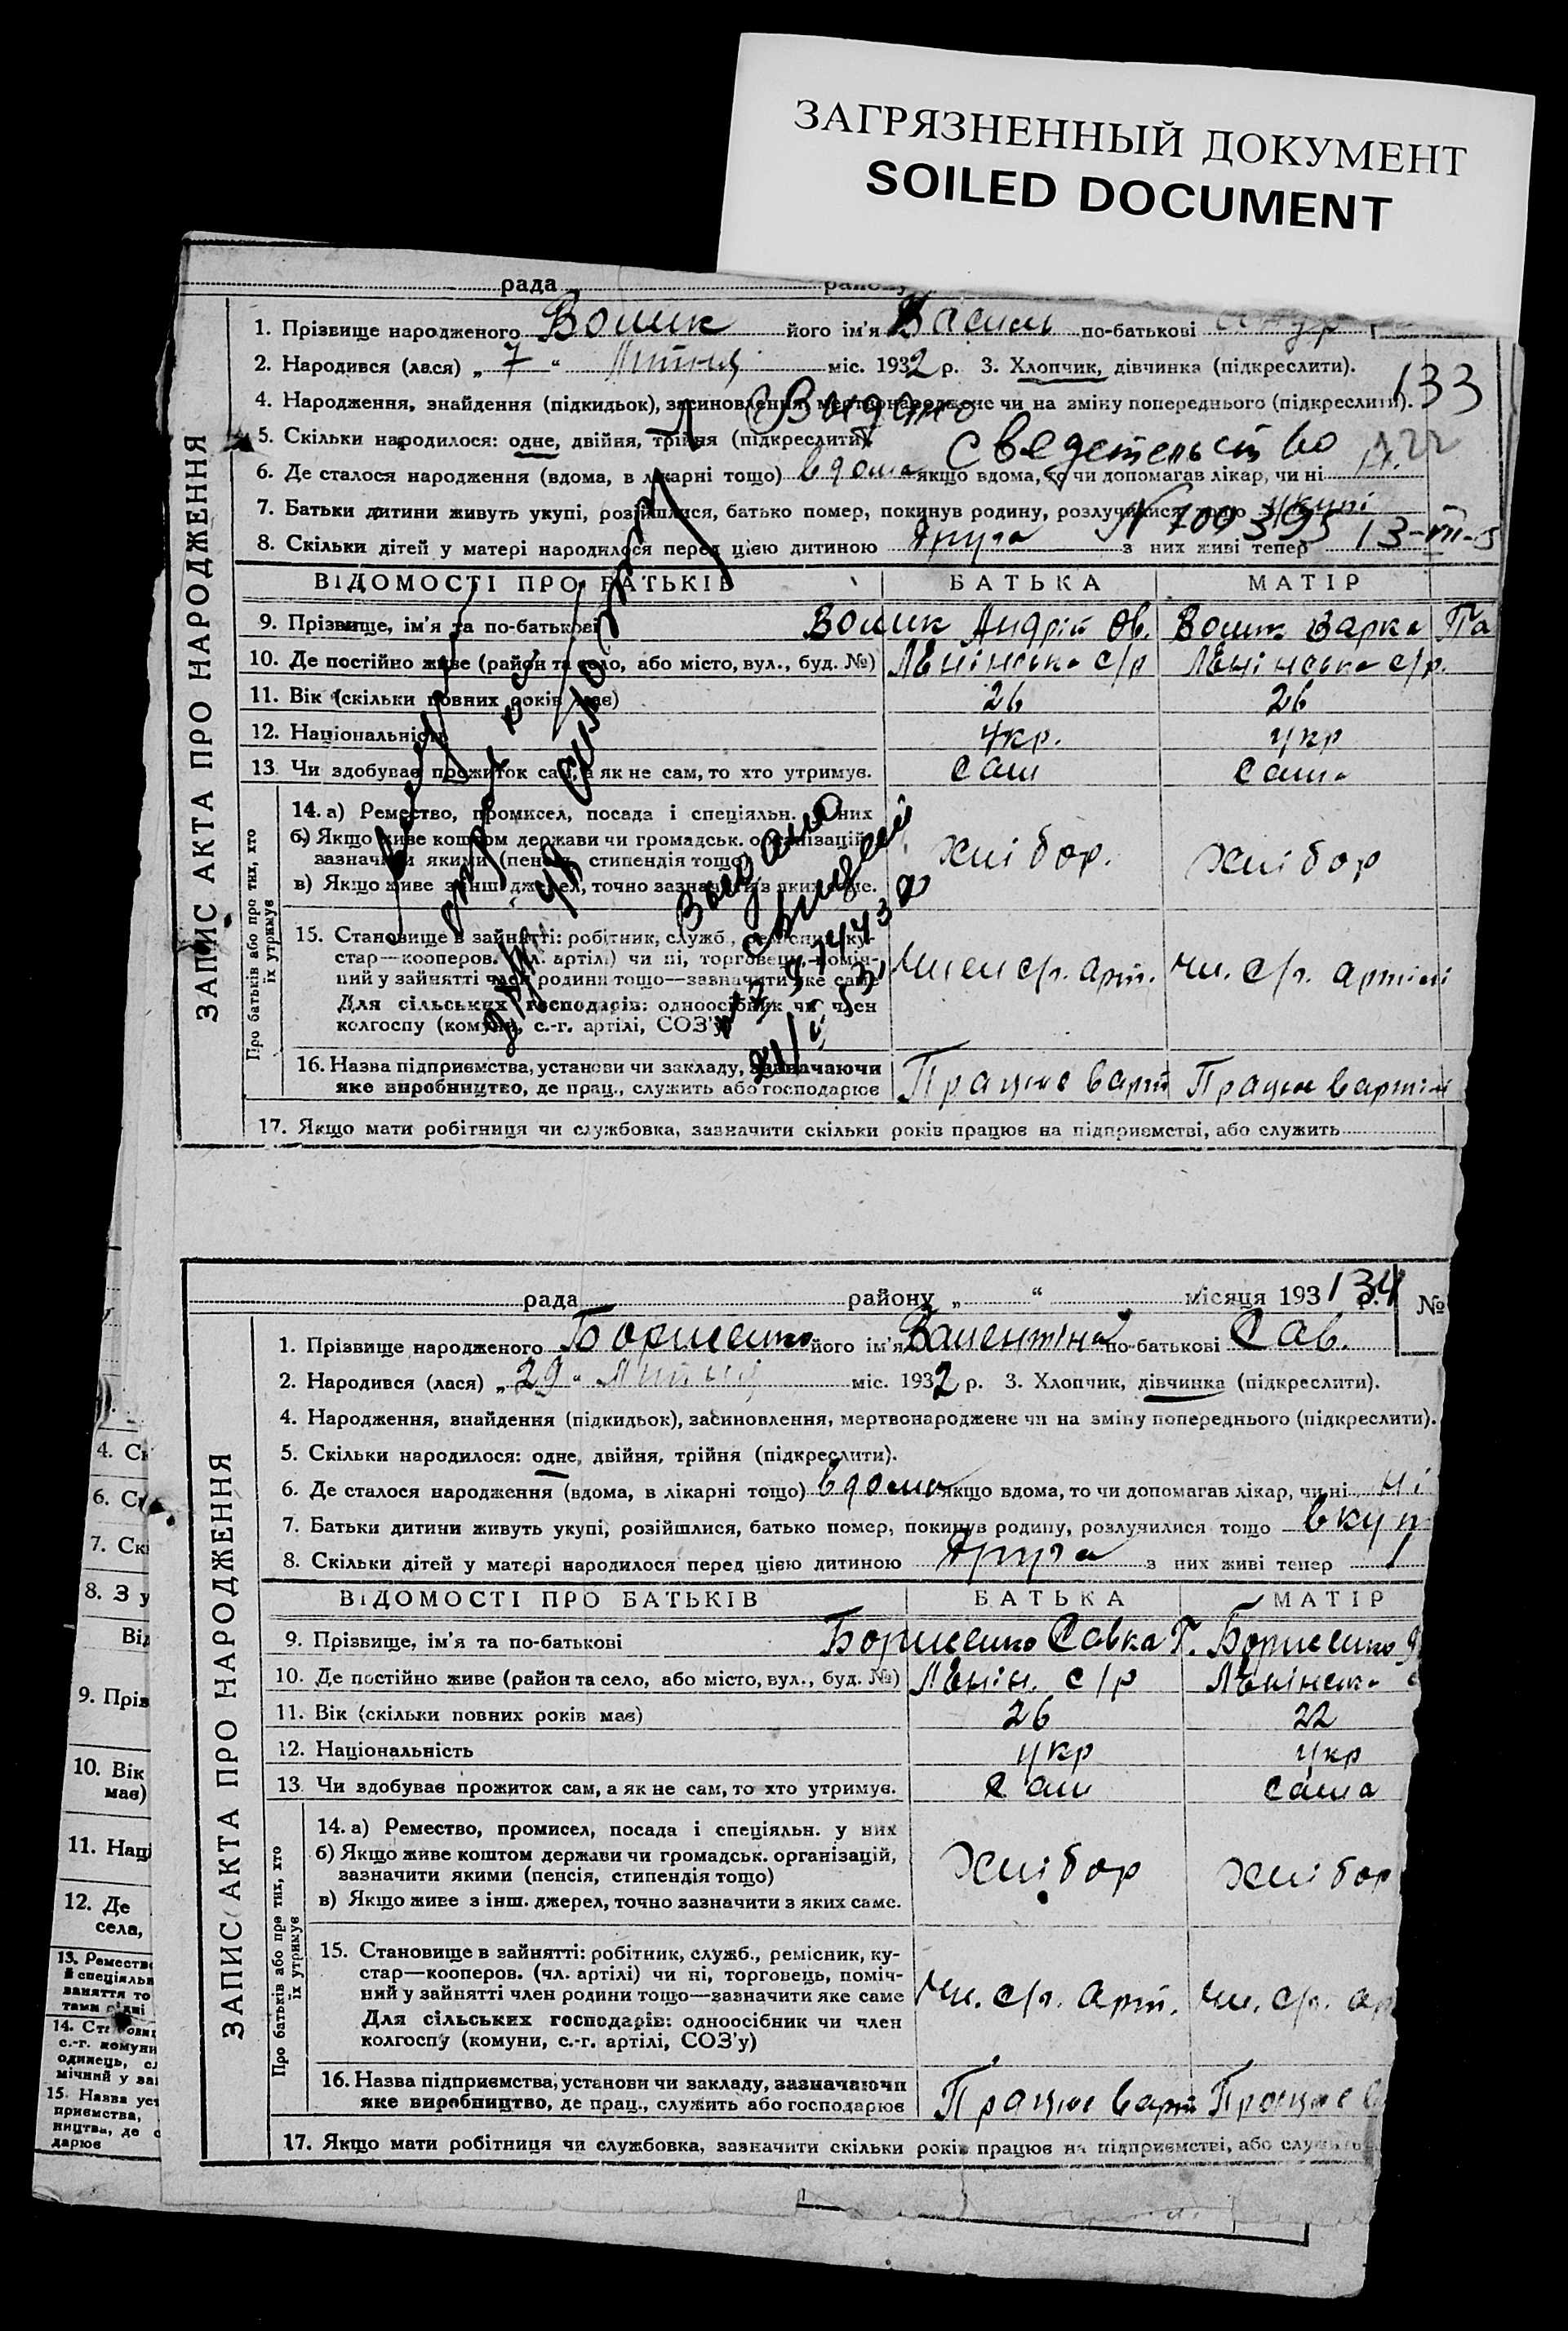 ЗАГРЯЗНЕННЫЙ ДОКУМЕНТ
SOILED DOCUMENT
рада району
ЗАПИС АКТА ПРО НАРОДЖЕННЯ
1. Прізвище народженого Волик його ім'я Василь по-батькові
2. Народився (лася) „ 7 “ Липня міс. 1932 р. 3. Хлопчик, дівчинка (підкреслити).
133
4. Народження, знайдення (підкидьок), засиновлення, мертвонароджене чи на зміну попереднього (підкреслити).
Видано
5. Скільки народилося: одне, двійня, трійня (підкреслити)
Сведетельство
6. Де сталося народження (вдома, в лікарні тощо) вдома якщо вдома, то чи допомагав лікар, чи ні
7. Батьки дитини живуть укупі, розійшлися, батько помер, покинув родину, розлучилися тощо укупі
8. Скільки дітей у матері народилося перед цією дитиною друга з них живі тепер 1
ВІДОМОСТІ ПРО БАТЬКІВ БАТЬКА МАТІР
9. Прізвище, ім'я та по-батькові Волик Андрій Ов. Волик Варка Па
10. Де постійно живе (район та село, або місто, вул., буд. №) с/р с/р.
11. Вік (скільки повних років має) 26 26
12. Національність укр. укр
13. Чи здобуває прожиток сам, а як не сам, то хто утримує. сам сама
Про батьків або про тих, хто їх утримує
14. а) Ремество, промисел, посада і спеціяльн. у них
б) Якщо живе коштом держави чи громадськ. організацій,
зазначити якими (пенсія, стипендія тощо)
хлібор. хлібор
в) Якщо живе з інш. джерел, точно зазначити з яких саме.
Видано
15. Становище в зайнятті: робітник, служб., ремісник, ку-
стар—кооперов. (чл. артілі) чи ні, торговець, поміч-
ний у зайнятті член родини тощо—зазначити яке саме
Член с/г. арт. чл. с/г. артілі
Для сільських господарів: одноосібник чи член
колгоспу (комуни, с.-г. артілі, СОЗ'у)
16. Назва підприємства, установи чи закладу, зазначаючи
яке виробництво, де прац., служить або господарює
Працює в арт Працює в артіл
17. Якщо мати робітниця чи службовка, зазначити скільки років працює на підприємстві, або служить
рада району „ “ місяця 193 р. №
134
ЗАПИС АКТА ПРО НАРОДЖЕННЯ
1. Прізвище народженого Борисенко його ім'я Валентіна по-батькові Сав.
2. Народився (лася) „ 29 “ Липня міс. 1932 р. 3. Хлопчик, дівчинка (підкреслити).
4. Народження, знайдення (підкидьок), засиновлення, мертвонароджене чи на зміну попереднього (підкреслити).
5. Скільки народилося: одне, двійня, трійня (підкреслити).
6. Де сталося народження (вдома, в лікарні тощо) вдома якщо вдома, то чи допомагав лікар, чи ні ні
7. Батьки дитини живуть укупі, розійшлися, батько помер, покинув родину, розлучилися тощо вкуп
8. Скільки дітей у матері народилося перед цією дитиною друга з них живі тепер 1
ВІДОМОСТІ ПРО БАТЬКІВ БАТЬКА МАТІР
9. Прізвище, ім'я та по-батькові Борисенко Савка Г. Борисенко
10. Де постійно живе (район та село, або місто, вул., буд. №) с/р
11. Вік (скільки повних років має) 26 22
12. Національність укр укр
13. Чи здобуває прожиток сам, а як не сам, то хто утримує. сам сама
Про батьків або про тих, хто їх утримує
14. а) Ремество, промисел, посада і спеціяльн. у них
б) Якщо живе коштом держави чи громадськ. організацій,
зазначити якими (пенсія, стипендія тощо)
хлібор хлібор
в) Якщо живе з інш. джерел, точно зазначити з яких саме.
15. Становище в зайнятті: робітник, служб., ремісник, ку-
стар—кооперов. (чл. артілі) чи ні, торговець, поміч-
ний у зайнятті член родини тощо—зазначити яке саме
чл. с/г. арт. чл. с/г. ар
Для сільських господарів: одноосібник чи член
колгоспу (комуни, с.-г. артілі, СОЗ'у)
16. Назва підприємства, установи чи закладу, зазначаючи
яке виробництво, де прац., служить або господарює
Працює в арт Працює в
17. Якщо мати робітниця чи службовка, зазначити скільки років працює на підприємстві, або служить
4. Ск
6. Ст
7. Ск
8. З у
Від
9. Пріз
10. Вік
має)
11. Наці
12. Де
села,
13. Реместв
й спеціяльн
заняття то
14. Ст
с.-г. комуни
одинець, сл
мічний у за
15. Назва уст
приємства,
ництва, де с
дарює